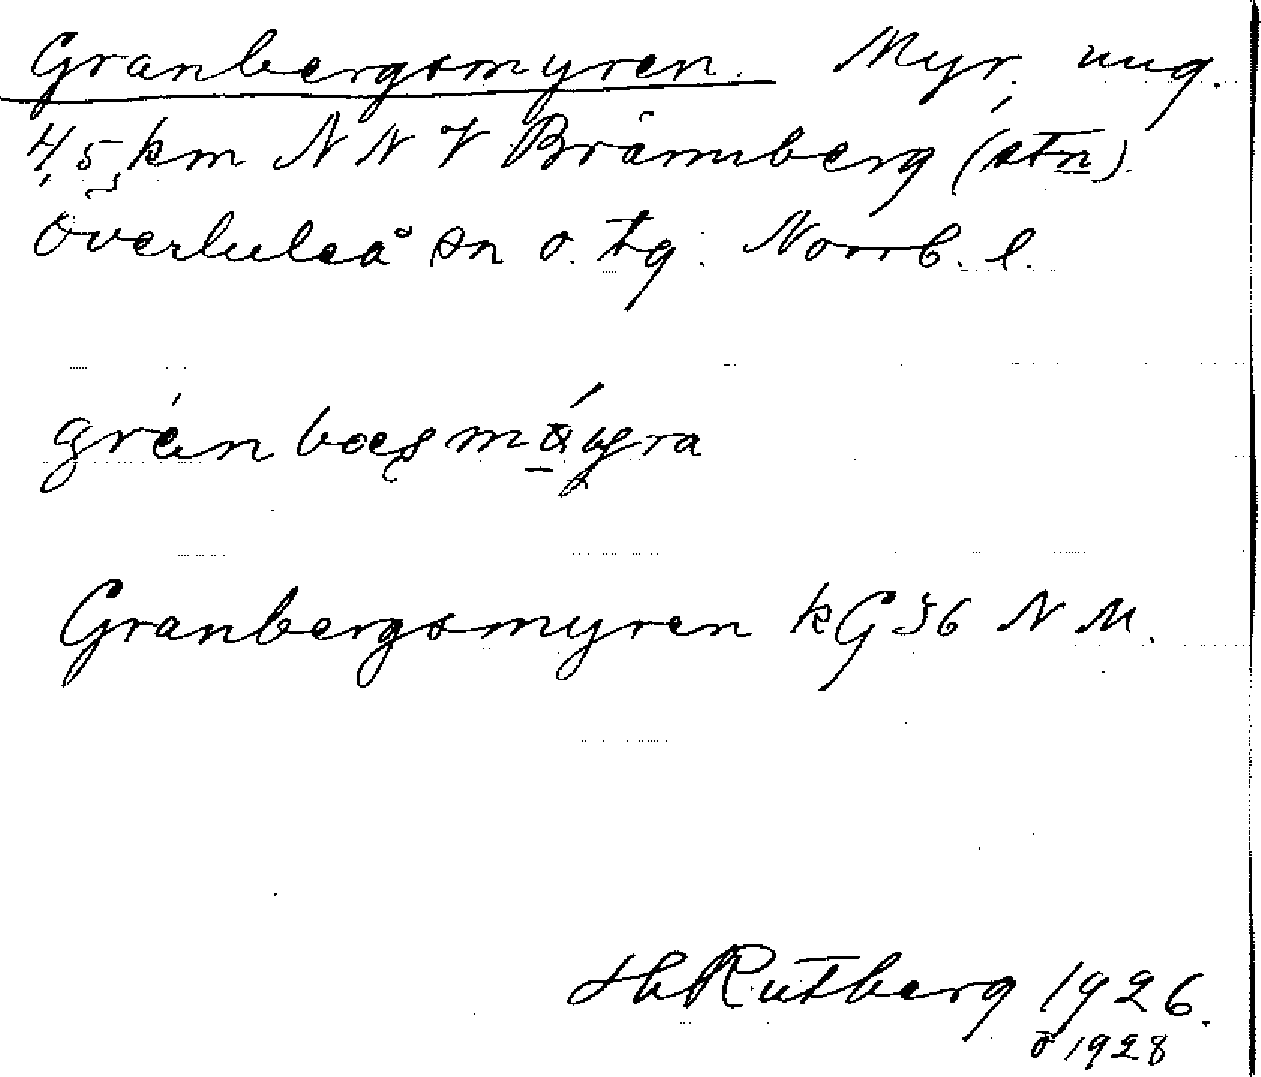 Granbergsmyren. Myr. ung.
4,5 km N N V Brännberg (stn)
Överluleå sn o. tg. Norrb. l.
Granbergsmyren kG 36 N M.
Hl Rutberg 1926.
ö 1928